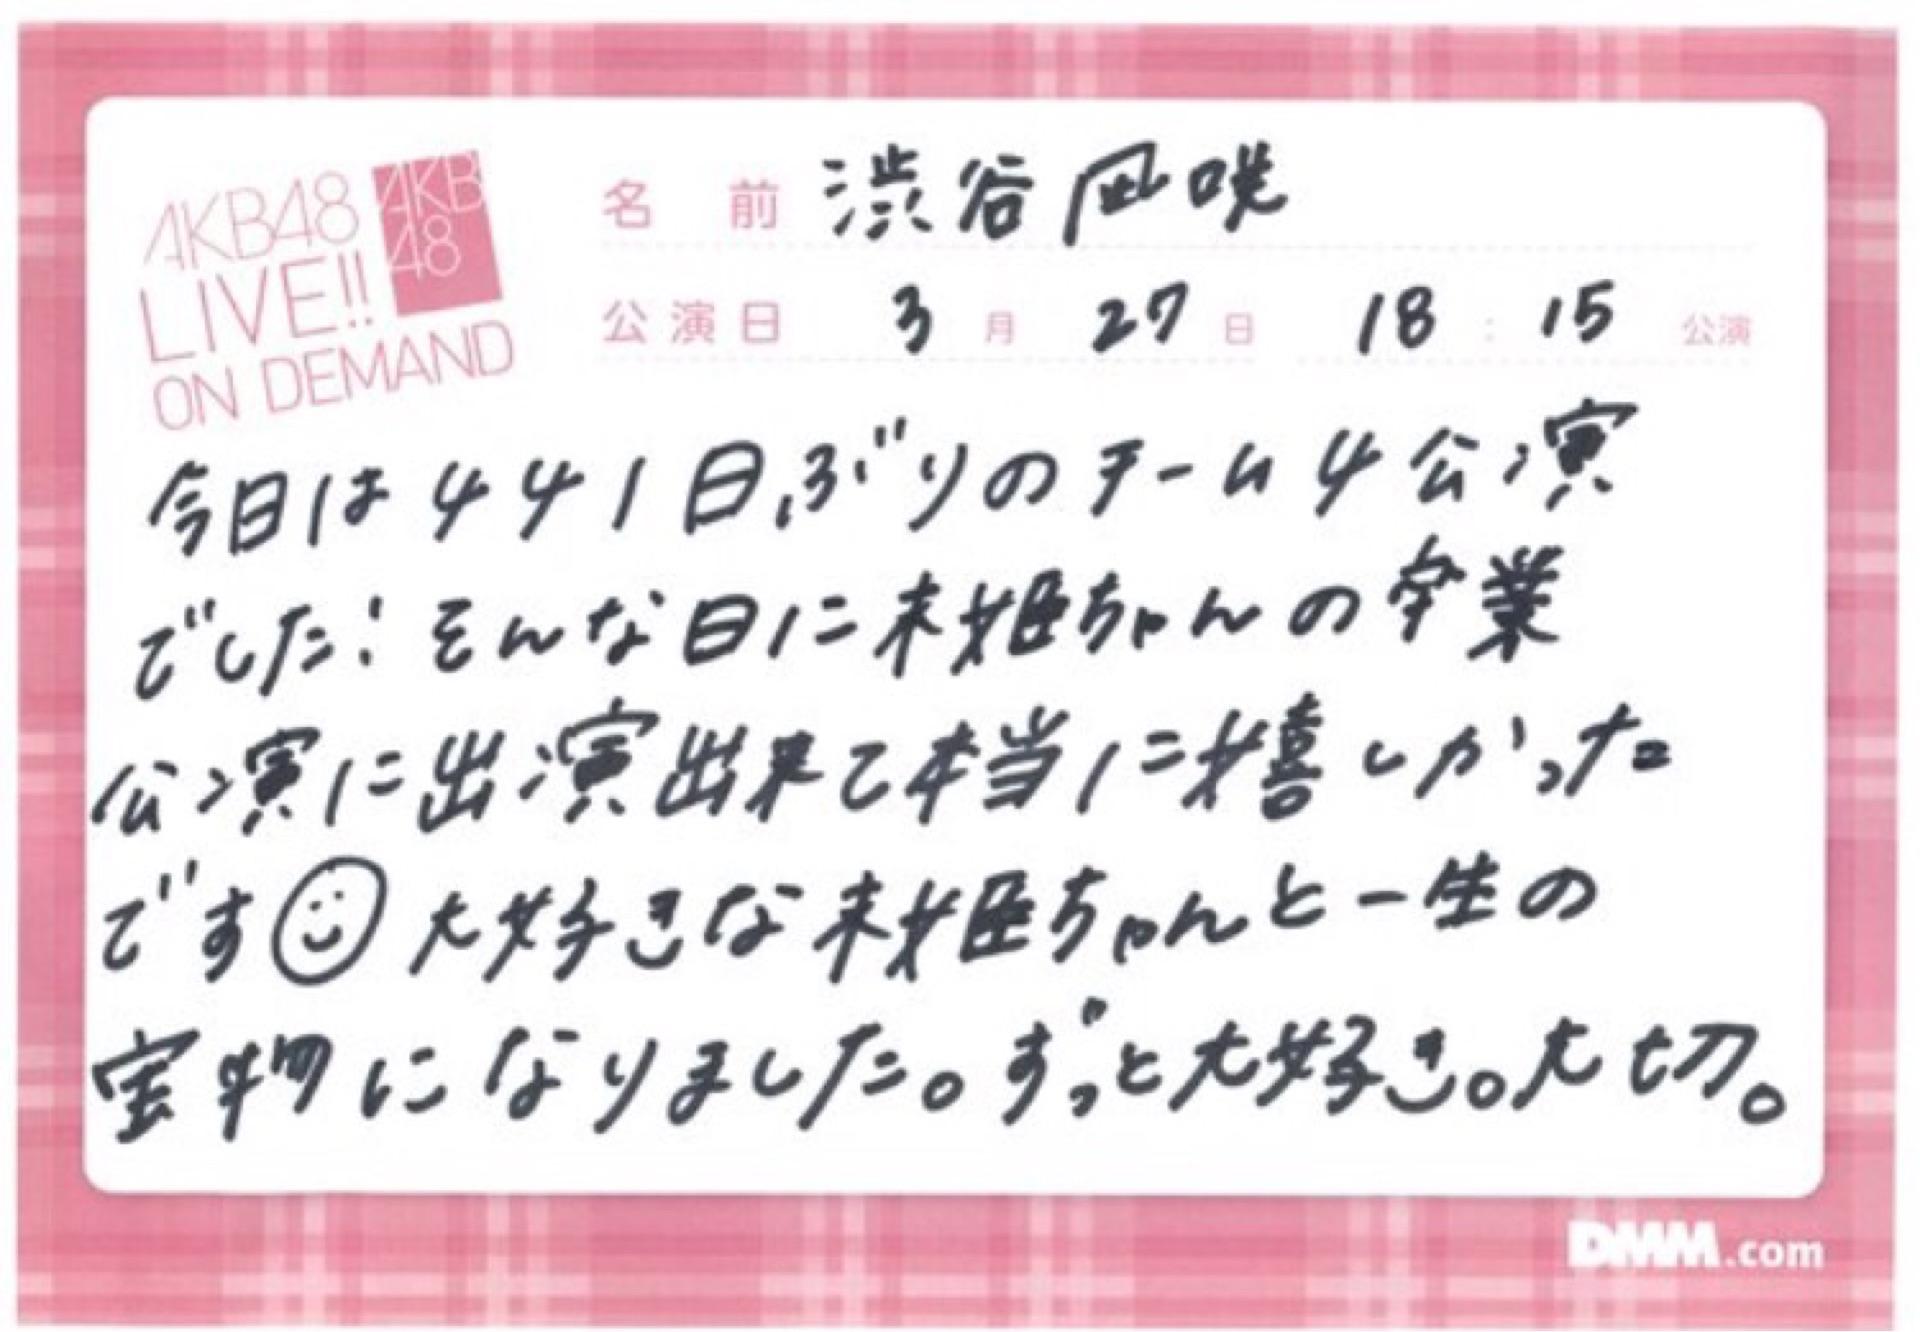 AKB48
LIVE!!
ON DEMAND
AKB
48
名前 渋谷凪咲
公演日 3月27日 18:15公演
今日は441日ぶりのチーム4公演
でした!そんな日に未姫ちゃんの卒業
公演に出演出来て本当に嬉しかった
です 大好きな未姫ちゃんと一生の
宝物になりました。ずっと大好き。大切。
DMM.com